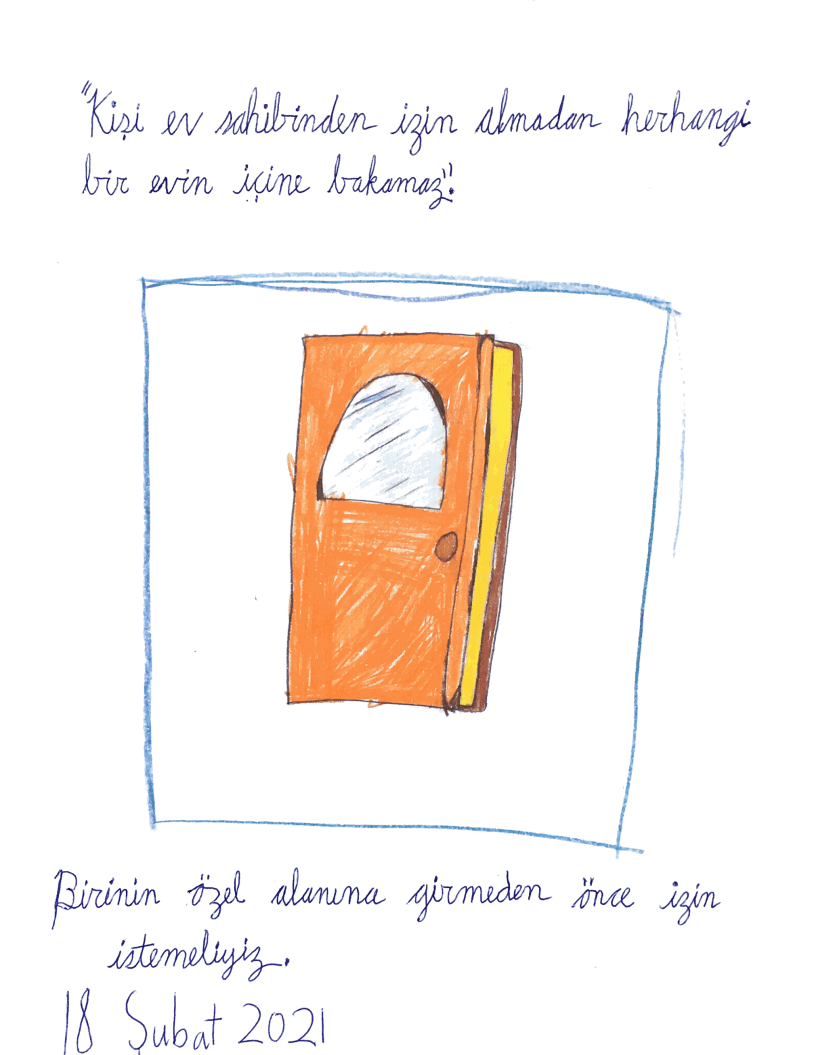 "Kişi ev sahibinden izin almadan herhangi
bir evin içine bakamaz".
Birinin özel alanına girmeden önce izin
istemeliyiz.
18 Şubat 2021